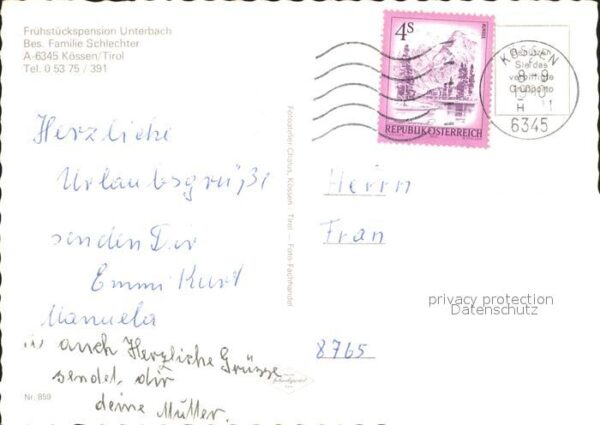 Frühstückspension Unterbach
Bes. Familie Schlechter
A-6345 Kössen/Tirol
Tel. 0 53 75 / 391
4S
REPUBLIK ÖSTERREICH
KÖSSEN
6345
Fotoatelier Chalus, Kössen - Tirol - Foto-Fachhandel
Herzliche
Urlaubsgrüße
senden Dir
Emmi Kurt
Manuela
auch Herzliche Grüsse
sendet dir
deine Mutter.
Herrn
Fran
8765
privacy protection
Datenschutz
Nr. 859